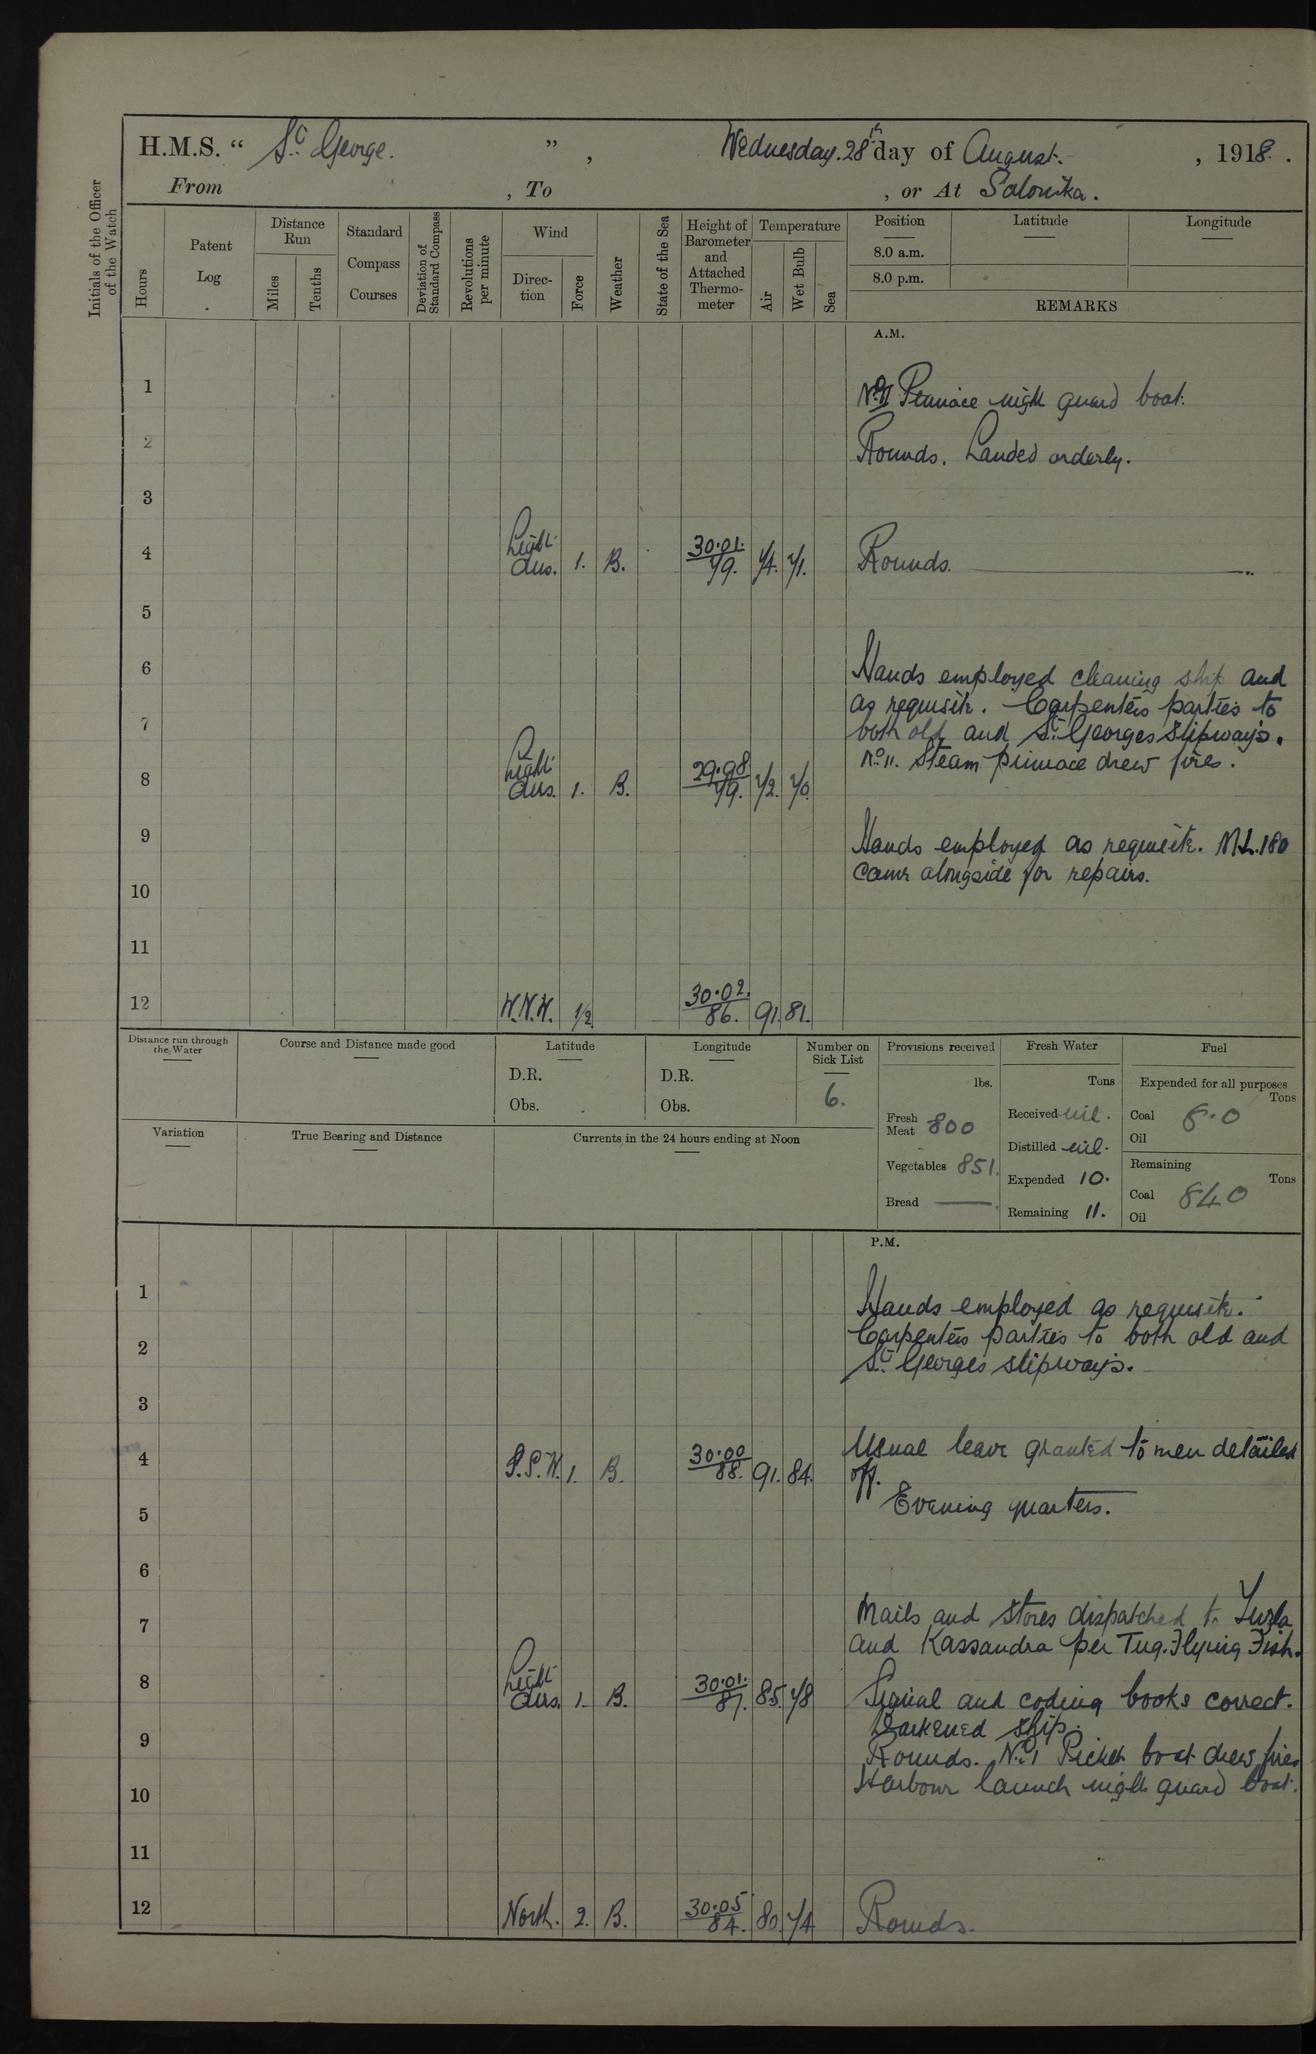 H.M.S. “ St George. ” , Wednesday. 28th day of August. , 1918 .
From , To , or At Salonika.
Initials of the Officer of the Watch
Hours
Patent Log
Distance Run
Miles
Tenths
Standard Compass Courses
Deviation of Standard Compass
Revolutions per minute
Wind
Direction
Force
Weather
State of the Sea
Height of Barometer and Attached Thermometer
Temperature
Air
Wet Bulb
Sea
Position Latitude Longitude
8.0 a.m.
8.0 p.m.
REMARKS
A.M.
1 No 11 Pinnace night guard boat.
2 Rounds. Landed orderly.
3
4 Light airs. 1. B. 30.01. 79. 74. 71. Rounds.
5
6 Hands employed cleaning ship and
as requisite. Carpenters parties to
7 both old and St Georges slipways.
No 11. Steam pinnace drew fires.
8 Light airs. 1. B. 29.98 79. 72. 70.
9 Hands employed as requisite. M.L. 180
came alongside for repairs.
10
11
12 W.N.W. 1/2 30.02. 86. 91. 81.
Distance run through the Water
Course and Distance made good
Latitude
D.R.
Obs.
Longitude
D.R.
Obs.
Number on Sick List
6.
Variation
True Bearing and Distance
Currents in the 24 hours ending at Noon
Provisions received
lbs.
Fresh Meat 800
Vegetables 851.
Bread
Fresh Water
Tons
Received nil.
Distilled nil.
Expended 10.
Remaining 11.
Fuel
Expended for all purposes
Tons
Coal 8.0
Oil
Remaining
Tons
Coal 840
Oil
P.M.
1 Hands employed as requisite.
2 Carpenters parties to both old and
St Georges slipways.
3
4 S.S.W. 1. B. 30.00 88. 91. 84. Usual leave granted to men detailed
off.
5 Evening quarters.
6
7 Mails and stores dispatched to Tuzla
and Kassandra per Tug. Flying Fish.
8 Light airs. 1. B. 30.01. 87. 85. 78 Signal and coding books correct.
Darkened ship.
9 Rounds. No 1 Picket boat drew fires
10 Harbour launch night guard boat.
11
12 North. 2. B. 30.05 84. 80. 74 Rounds.